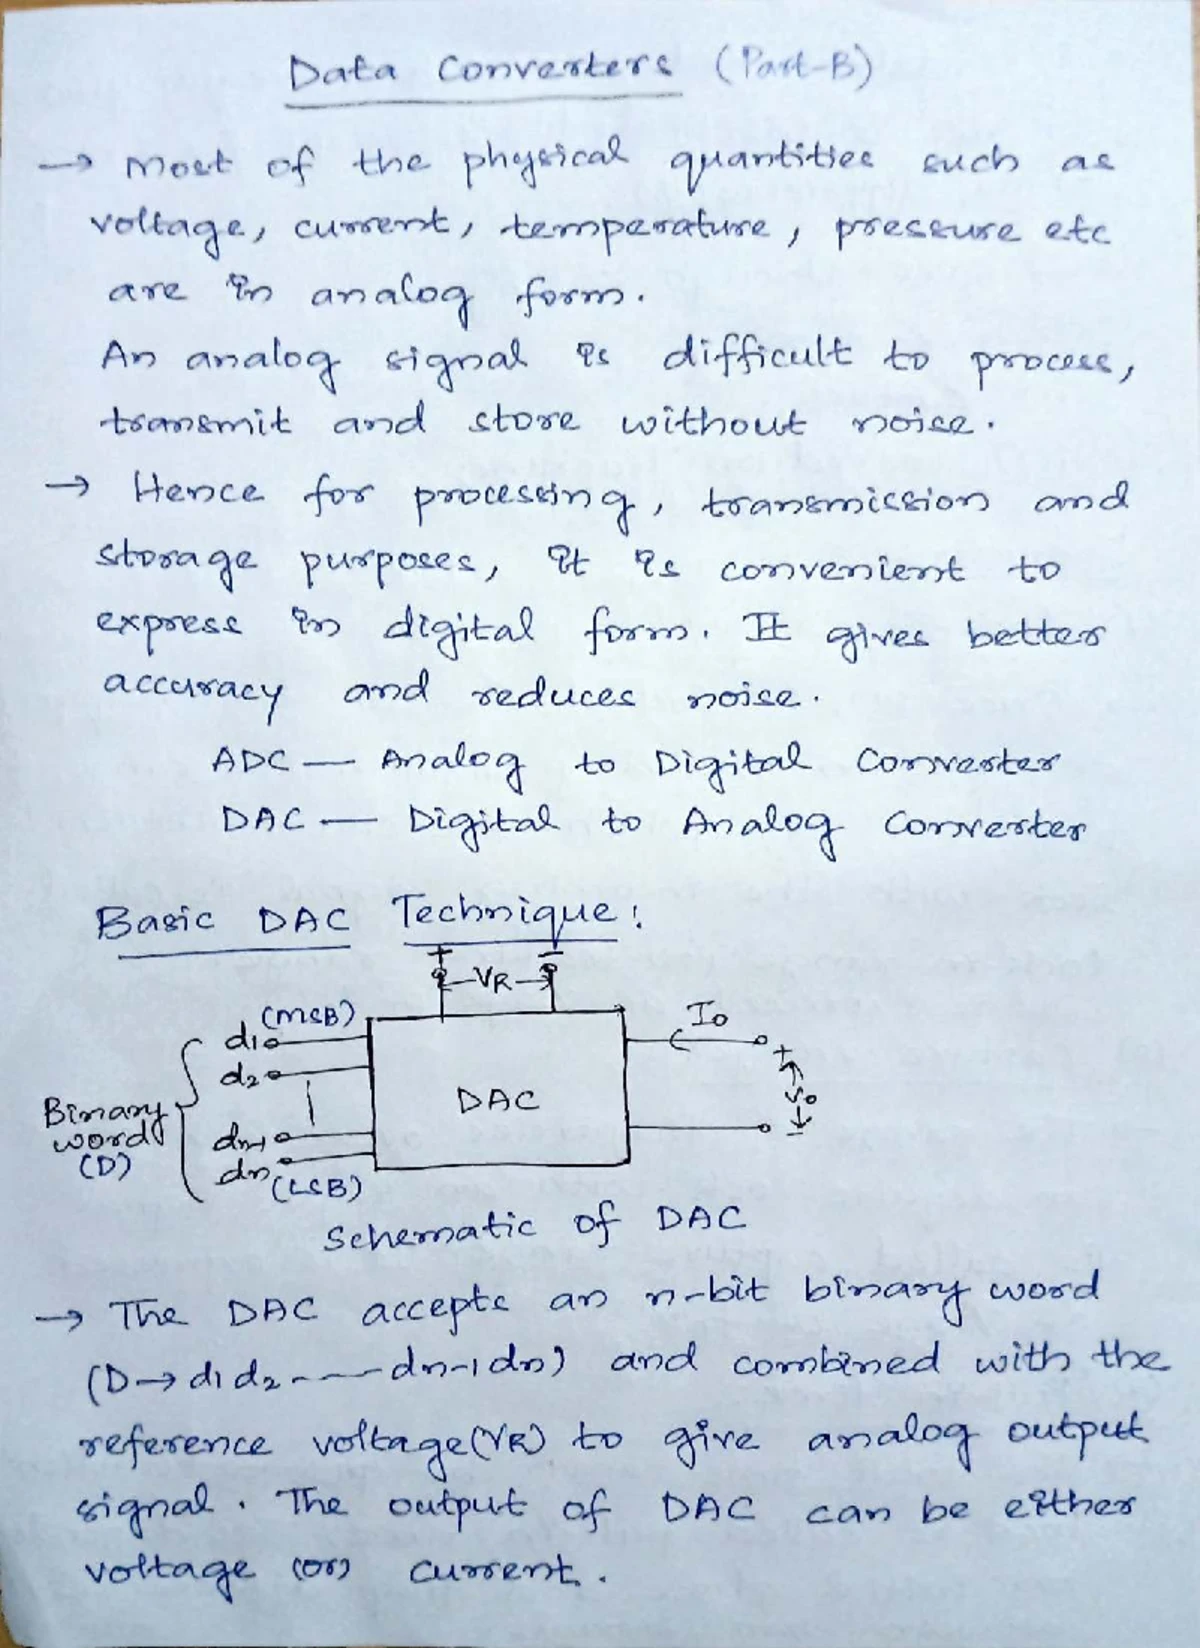 Data Converters (Part-B)
→ Most of the physical quantities such as
voltage, current, temperature, pressure etc
are in analog form.
An analog signal is difficult to process,
transmit and store without noise.
→ Hence for processing, transmission and
storage purposes, it is convenient to
express in digital form. It gives better
accuracy and reduces noise.
ADC — Analog to Digital Converter
DAC — Digital to Analog Converter
Basic DAC Technique:
+ −
VR
(MSB)
d1
d2
Binary
word
(D)
dn-1
dn
(LSB)
DAC
Io
+
Vo
−
Schematic of DAC
→ The DAC accepts an n-bit binary word
(D→d1d2----dn-1dn) and combined with the
reference voltage(VR) to give analog output
signal. The output of DAC can be either
voltage (or) current.